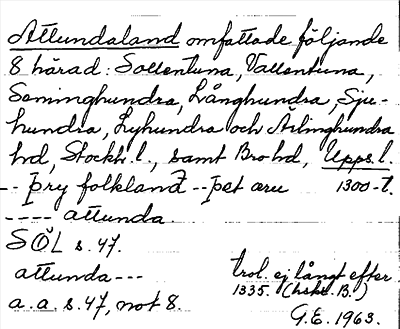 Attundaland omfattade följande
8 härad: Sollentuna, Vallentuna,
Seminghundra, Långhundra, Sju-
hundra, Lyhundra och Ärlinghundra
hd, Stockh. l., samt Bro hd, Upps. l.
-- þry folkland -- þet æru 1300-t.
---- attunda.
SÖL s. 47.
attunda---
a. a. s. 47, not 8.
trol. ej långt efter
1335. (hskr. B.)
G.E. 1963.